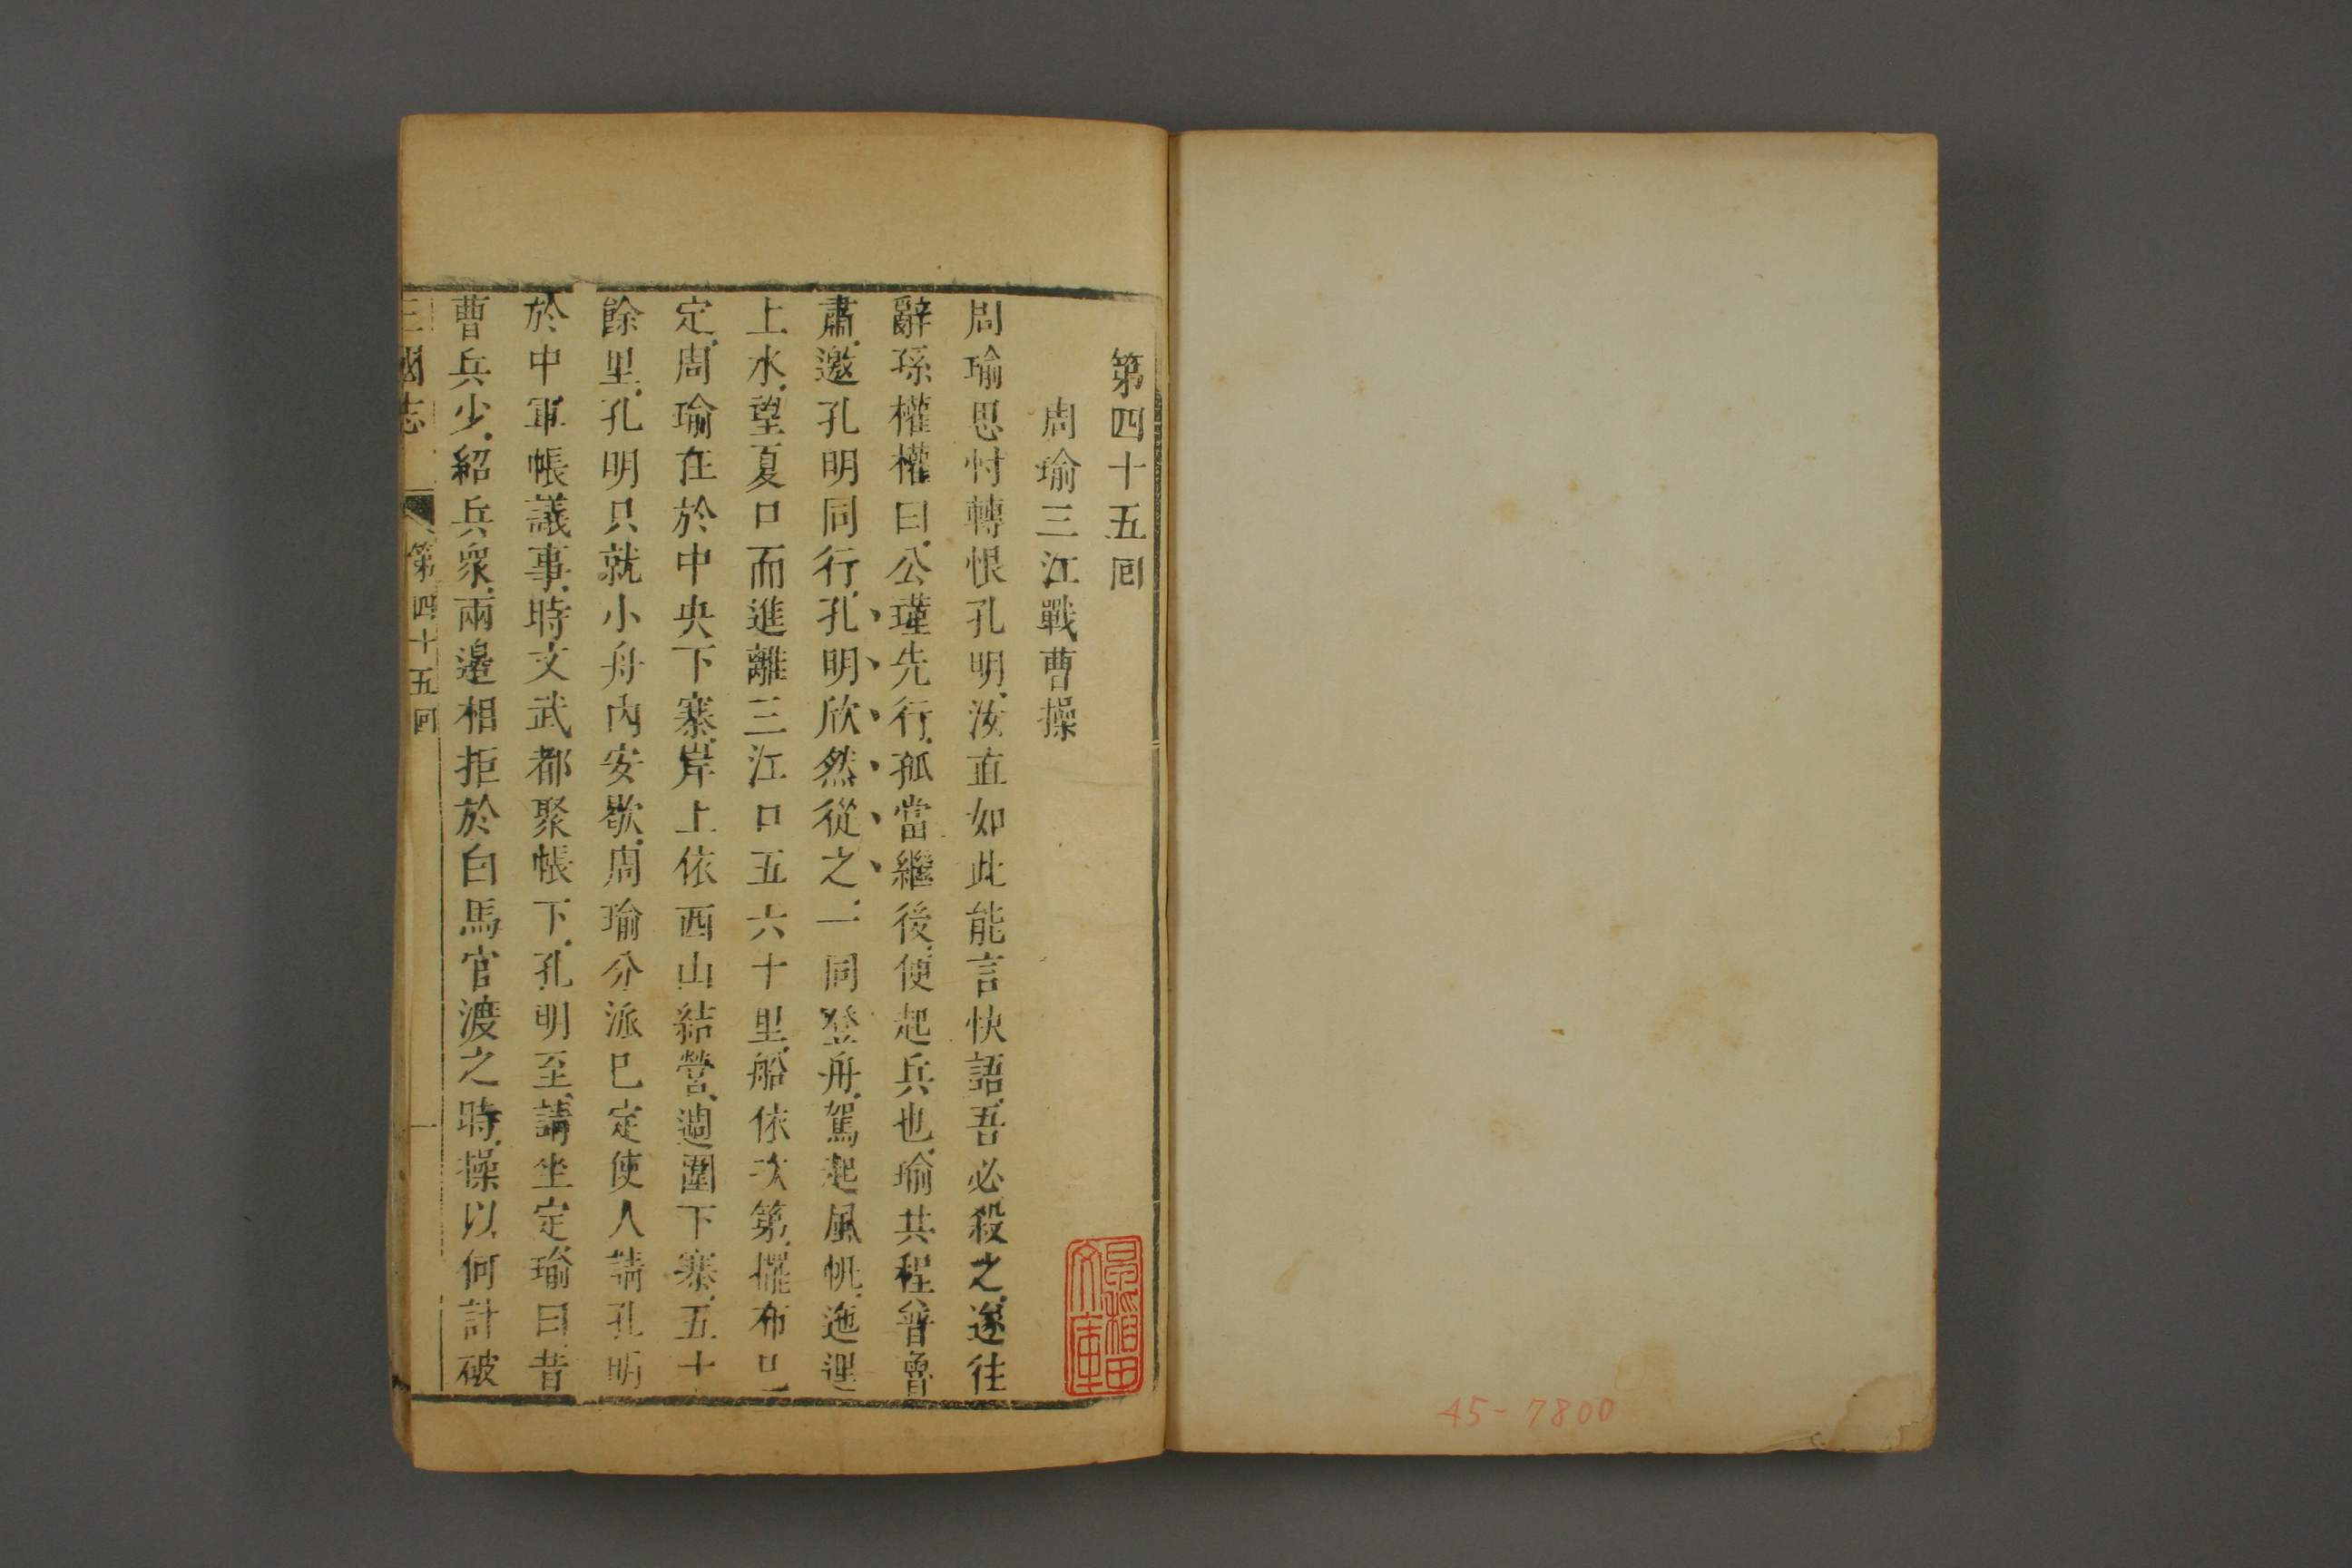 45-7800
第四十五囘
周瑜三江戰曹操
周瑜思忖轉恨孔明汝直如此能言快語吾必殺之遂往
辭孫權權曰公瑾先行孤當繼後便起兵也瑜共程普魯
肅邀孔明同行孔明欣然從之一同登舟駕起風帆迤逕
上水望夏口而進離三江口五六十里船依次第擺布已
定周瑜在於中央下寨岸上依西山結營週圍下寨五十
餘里孔明只就小舟內安歇周瑜分派已定使人請孔明
於中軍帳議事時文武都聚帳下孔明至請坐定瑜曰昔
曹兵少紹兵衆兩邊相拒於白馬官渡之時操以何計破
三國志 第四十五囘 一
早稻田文庫